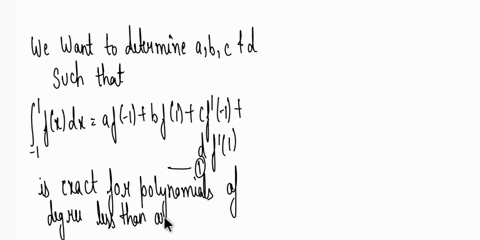 We want to determine a, b, c & d
such that
∫₋₁¹ f(x) dx = a f(-1) + b f(1) + c f'(-1) +
d f'(1)
— ①
is exact for polynomials of
degree less than